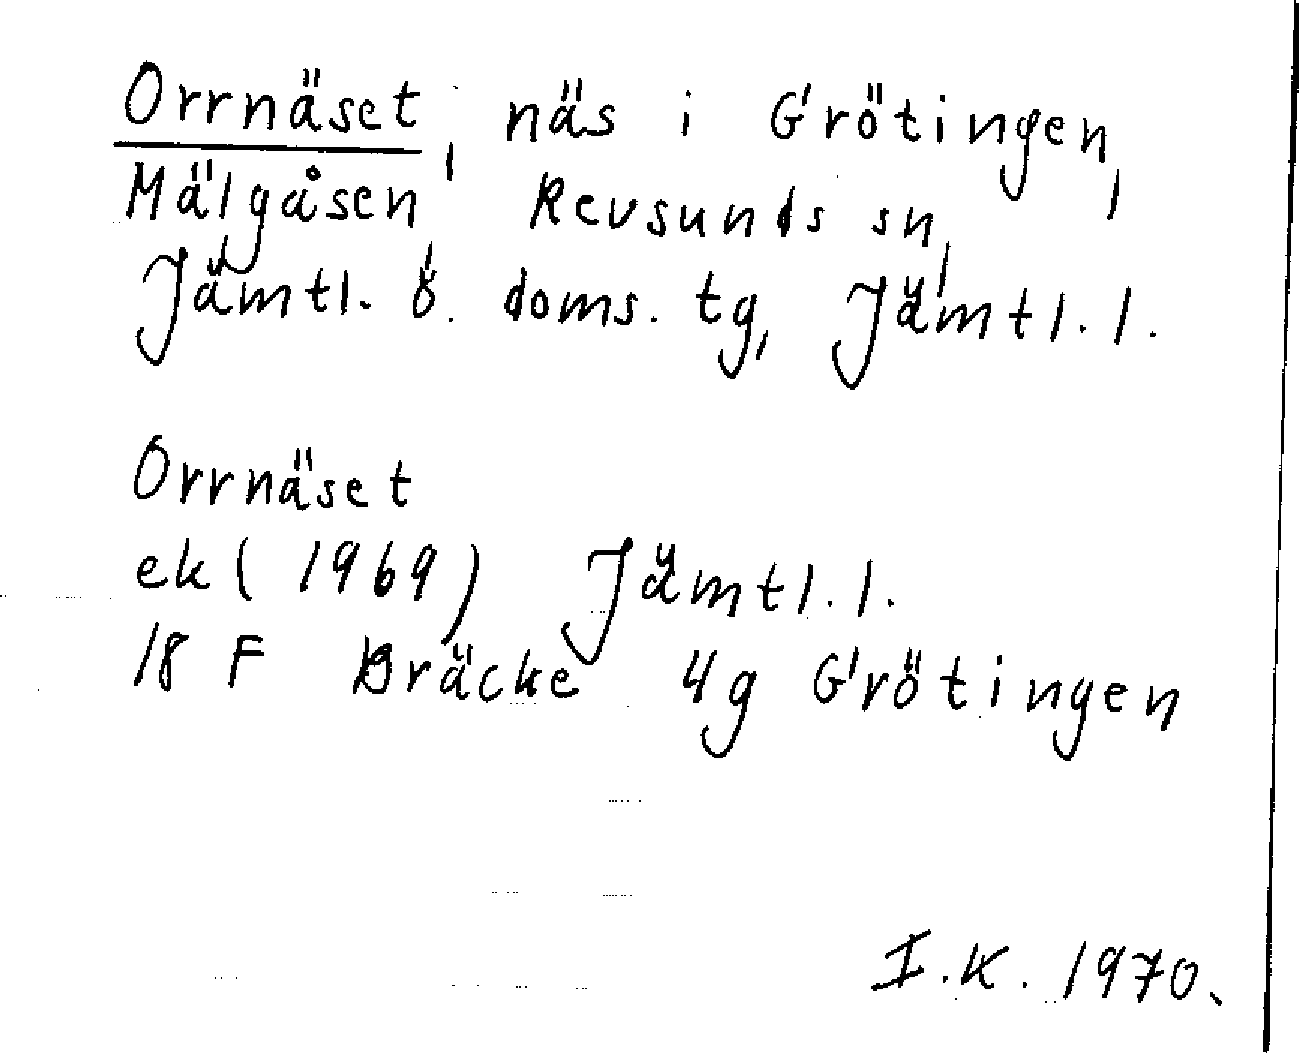 Orrnäset, näs i Grötingen,
Mälgåsen, Revsunds sn,
Jämtl. ö. doms. tg, Jämtl. l.
Orrnäset
ek (1969) Jämtl. l.
18 F Bräcke 4g Grötingen
I.K. 1970.